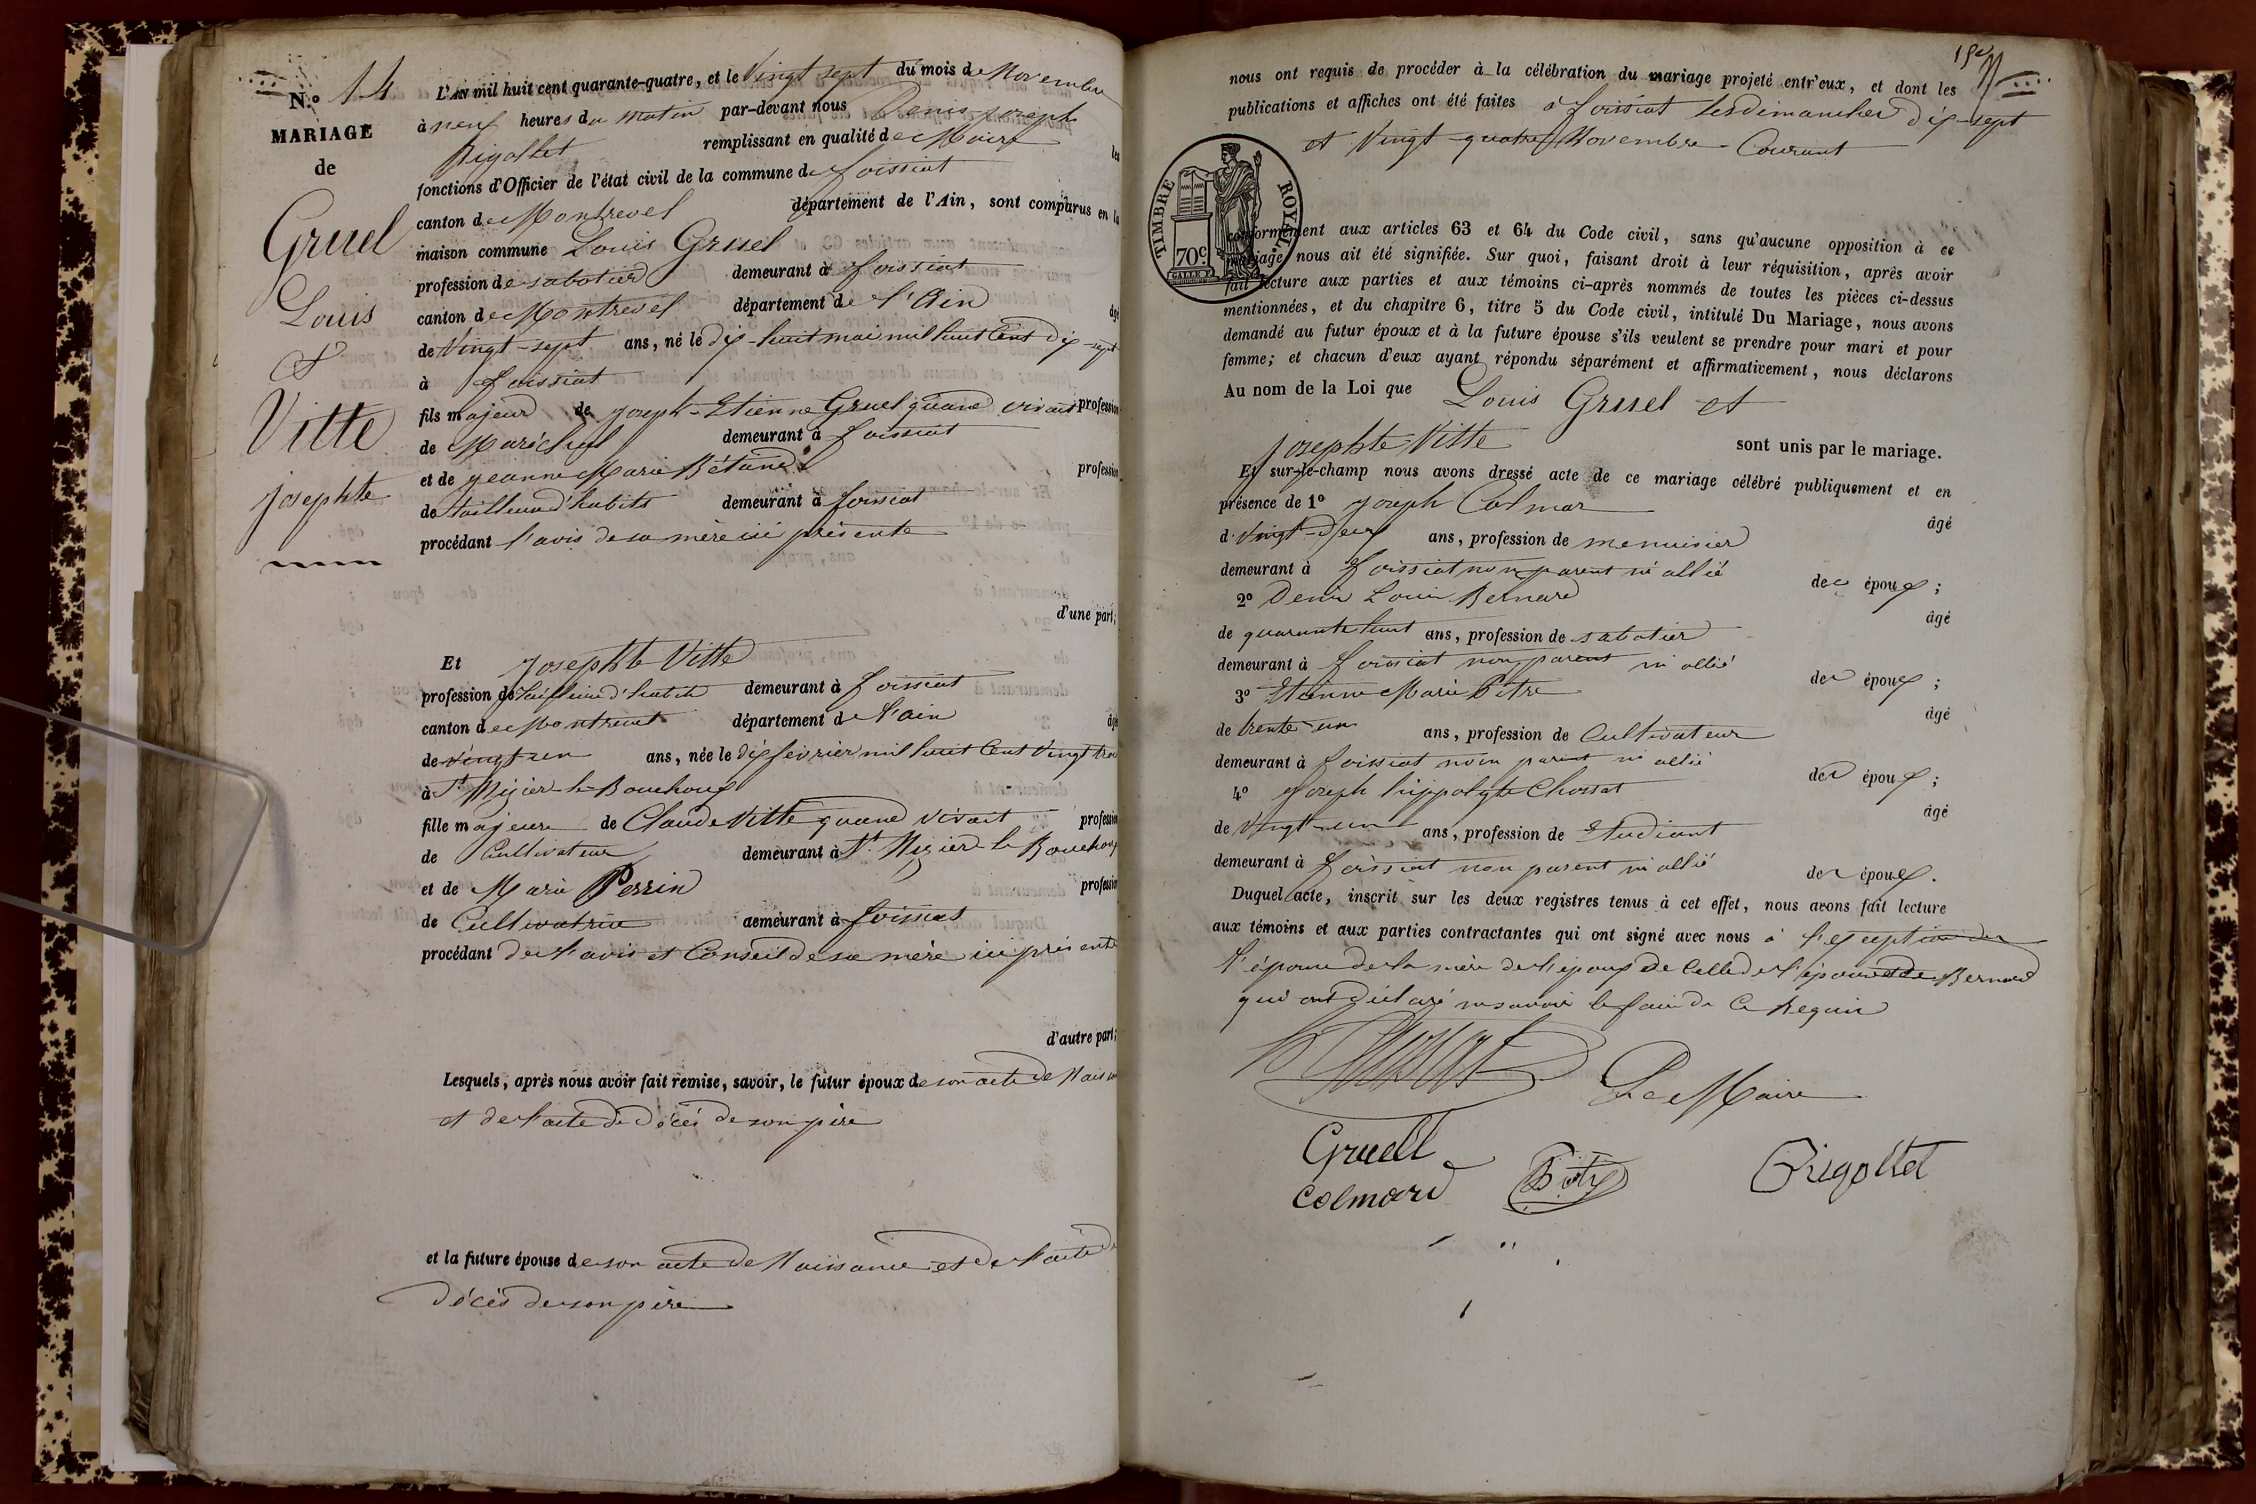 N.º 14
MARIAGE
de
Gruel
Louis
et
Vitte
josephte
L'AN mil huit cent quarante-quatre, et le Vingt sept du mois de Novembre
à neuf heures du matin par-devant nous Denis joseph
Rigollet remplissant en qualité de Maire les
fonctions d'Officier de l'état civil de la commune de foissiat
canton de Montrevel département de l'Ain, sont comparus en la
maison commune Louis Gruel
profession de sabotier demeurant à foissiat
canton de Montrevel département de l'Ain âgé
de Vingt-sept ans, né le dix-huit mai mil huit Cent dix-sept
à foissiat
fils majeur de joseph-Etienne Gruel quand vivait profession
de Maréchal demeurant à foissiat
et de jeanne Marie profession
de tailleuse d'habits demeurant à foissiat
procédant l'avis de sa mère ici présente
d'une part;
Et josephte Vitte
profession de tailleuse d'habits demeurant à foissiat
canton de Montrevel département de l'ain âgée
de vingt un ans, née le dix fevrier mil huit Cent Vingt trois
à St Nizier-le-Bouchoux
fille majeure de Claude Vitte quand vivait profession
de Cultivateur demeurant à St Nizier-le Bouchoux
et de Marie Perrin profession
de Cultivatrice demeurant à foissiat
procédant de l'avis et Conseil de sa mère ici présente
d'autre part;
Lesquels, après nous avoir fait remise, savoir, le futur époux de son acte de Naissance
et de l'acte de décès de son père
et la future épouse de son acte de Naissance et de l'acte de
décès de son père
nous ont requis de procéder à la célébration du mariage projeté entr'eux, et dont les
publications et affiches ont été faites à foissiat les dimanches dix-sept
et Vingt-quatre Novembre Courant
TIMBRE ROYAL.
70c
conformément aux articles 63 et 64 du Code civil, sans qu'aucune opposition à ce
mariage nous ait été signifiée. Sur quoi, faisant droit à leur réquisition, après avoir
fait lecture aux parties et aux témoins ci-après nommés de toutes les pièces ci-dessus
mentionnées, et du chapitre 6, titre 5 du Code civil, intitulé Du Mariage, nous avons
demandé au futur époux et à la future épouse s'ils veulent se prendre pour mari et pour
femme; et chacun d'eux ayant répondu séparément et affirmativement, nous déclarons
Au nom de la Loi que Louis Gruel et
josephte Vitte sont unis par le mariage.
Et sur-le-champ nous avons dressé acte de ce mariage célébré publiquement et en
présence de 1º joseph Colmar âgé
d. Vingt-deux ans, profession de menuisier
demeurant à foissiat non parent ni allié des époux;
2º Denis Louis Bernard âgé
de quarante huit ans, profession de sabotier
demeurant à foissiat non parent ni allié des époux;
3º Etienne Marie âgé
de trente-un ans, profession de Cultivateur
demeurant à foissiat non parent ni allié des époux;
4º joseph hippolyte Chossat âgé
de Vingt-un ans, profession de Etudiant
demeurant à foissiat non parent ni allié des époux.
Duquel acte, inscrit sur les deux registres tenus à cet effet, nous avons fait lecture
aux témoins et aux parties contractantes qui ont signé avec nous à l'exception de
l'épouse de la mère de l'époux de Celle de l'épouse et de Bernard
qui ont déclaré ne savoir le faire de Ce Requis
h Chossat
Le Maire
Gruell
Colmard
Rigollet